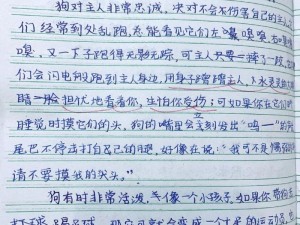 狗对主人非常忠诚,决对不会不伤害自己的主人
们经常到处乱跑,总能看见它们左嗅嗅,右
嗅,又一下子跑得无影无踪,可主人只要一
们会闪电般跑到主人身边,用身子蹭蹭主人,
睛一脸担忧地看着你,生怕你受伤;可如果你在它们
睡觉时摸它们的头,狗的嘴里会立刻发出"呜一"的
尾巴不停击打自己的腿,好像在说:"我可不是
请不要摸我的头。"
狗有时非常活泼,像一个小孩子。如果你带
打球、踢球,那它可就会变成一个